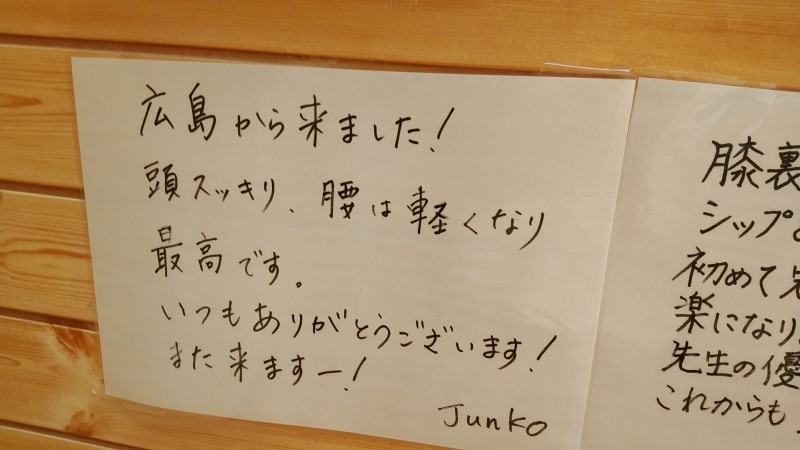 広島から来ました!
頭スッキリ、腰は軽くなり
最高です。
いつもありがとうございます!
また来ますー!
Junko
膝裏
シップ
初めて先
楽になり
先生の優
これからも